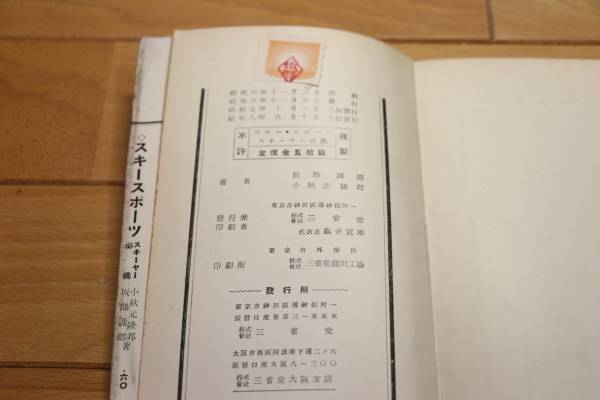 昭和六年十一月三日印刷
昭和六年十一月六日發行
昭和七年十月一日六版發行
昭和八年九月十日十版發行
不許
複製
スキー・スポーツ
スキーヤー必携
定價金五拾錢
著者
坂部護郎
小秋元隆邦
東京市神田區通神保町一
發行兼
印刷者
株式會社 三省堂
代表者 龜井寅雄
東京市外蒲田
印刷所
株式會社 三省堂蒲田工場
發行所
東京市神田區通神保町一
振替口座東京三一五五五
株式會社 三省堂
大阪市西區阿波座下通二ノ六
振替口座大阪八一三〇〇
株式會社 三省堂大阪支店
◇スキースポーツ
スキーヤー必携
小秋元隆邦
坂部護郎 著
・60